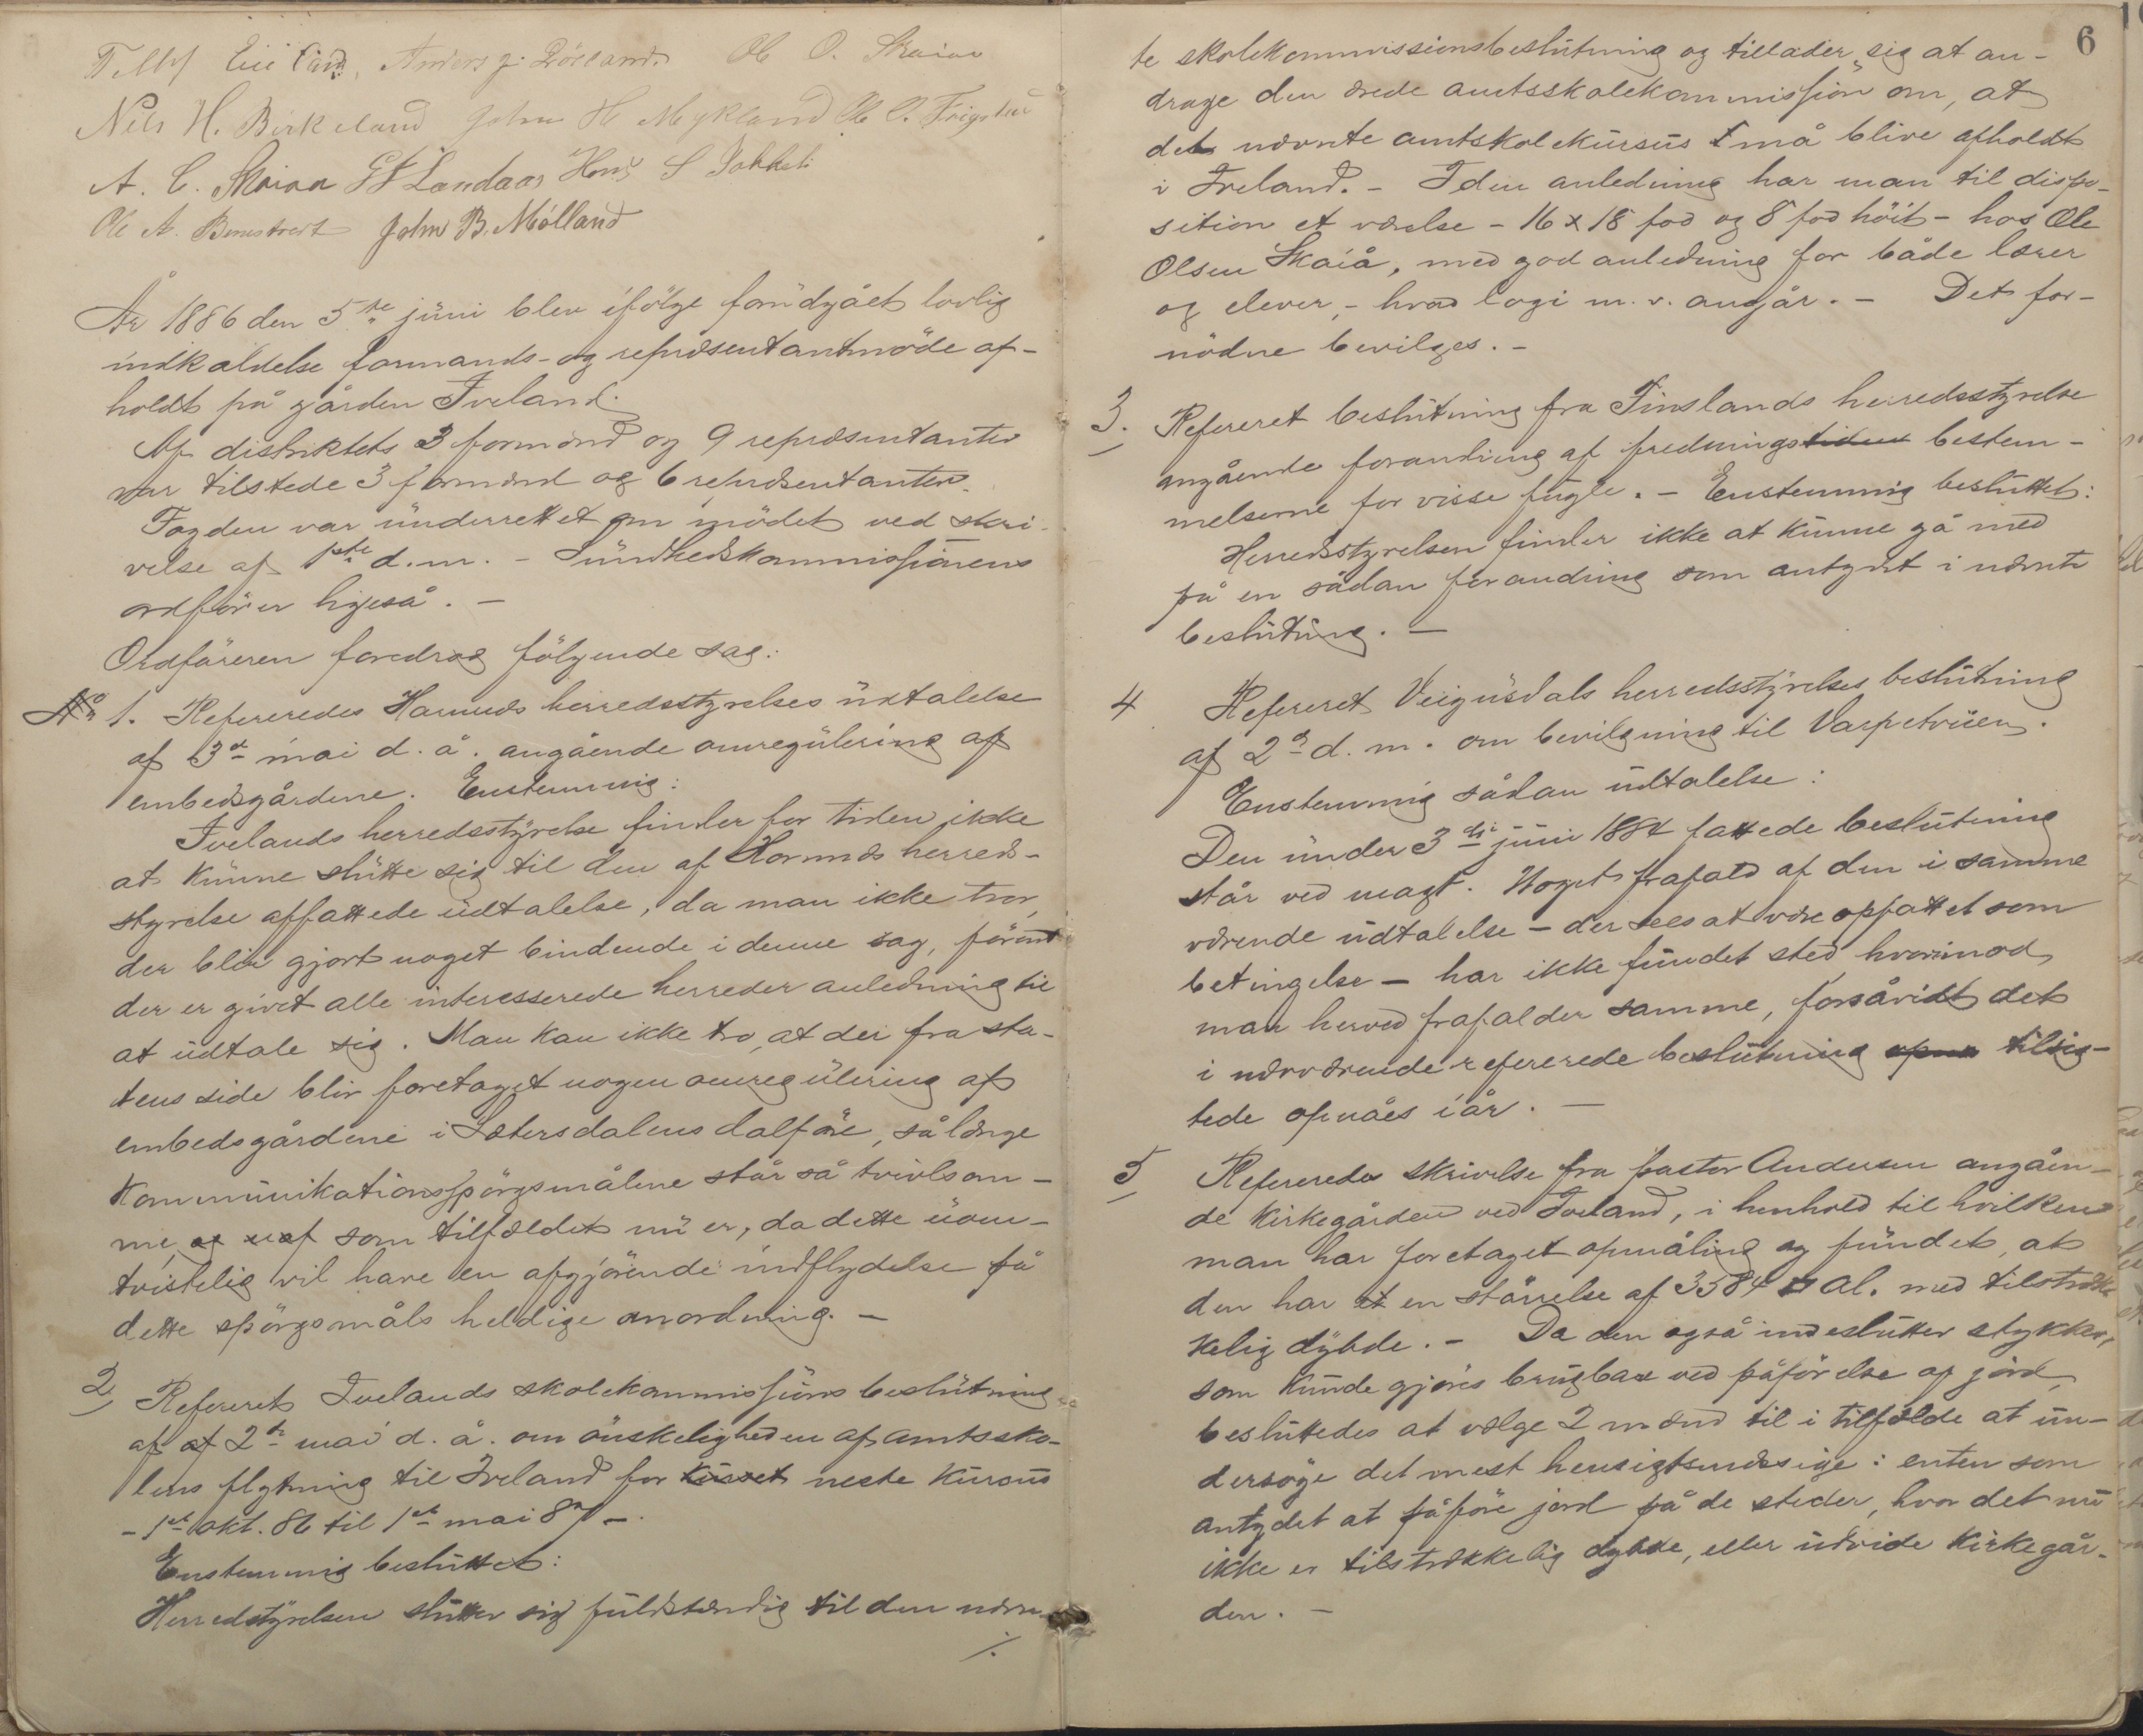 Anders J. Röiland. Ole O. Skaiaa
Nils H. Birkeland John H Mykland Ole O. Frigstad
A. C. Skaiaa Landaas Hans S
Ole A. John B. Mölland
År 1886 den 5te juni blev ifölge forudgået lovlig
indkaldelse formands- og repræsentantmöde af-
holdt på gården Iveland.
Af distriktets 3 formænd og 9 repræsentanter
var tilstede 3 formænd og 6 repræsentanter.
Fogden var underrettet om mödet ved skri-
velse af 1ste d.m. - Sundhedskommissionens
ordförer ligeså. -
Ordföreren foredrog fölgende sag:
No 1. Refereredes Hornnes herredsstyrelses udtalelse
af 3de mai d. å. angående omregulering af
embedsgårdene. Enstemmig:
Ivelands herredsstyrelse finder for tiden ikke
at kunne slutte sig til den af Hornnes herreds-
styrelse affattede udtalelse, da man ikke tror,
der blir gjort noget bindende i denne sag, förend
der er givet alle interesserede herreder anledning til
at udtale sig. Man kan ikke tro, at der fra sta-
tens side blir foretaget nogen omregulering af
embedsgårdene i Sætersdalens dalföre, sålænge
kommunikationsspörgsmålene står så tvivlsom-
me, som tilfældet nu er, da dette uom-
tvistelig vil have en afgjörende indflydelse på
dette spörgsmåls heldige anordning. -
2 Refereret Ivelands skolekommissions beslutning
af af 2de mai d. å. om önskeligheden af amtssko-
lens flytning til Iveland for kurset neste kursus
- 1ste okt. 86 til 1ste mai 87 -.
Enstemmig besluttet:
Herredstyrelsen slutter sig fuldstændig til den nævn-
./.
6
te skolekommissionsbeslutning og tillader sig at an-
drage den ærede amtsskolekommission om, at
det nævnte amtskolekursus må blive afholdt
i Iveland. - I den anledning har man til dispo-
sition et værelse - 16 x 18 fod og 8 fod höit - hos Ole
Olsen Skaiå, med god anledning for både lærer
og elever, - hvad logi m. v. angår. - Det for-
nödne bevilges. -
3. Refereret beslutning fra Finslands herredsstyrelse
angående forandring af fredningstiden bestem-
melserne for visse fugle. - Enstemmig besluttet:
Herredsstyrelsen finder ikke at kunne gå med
på en sådan forandring som antydet i nævnte
beslutning. -
4 Refereret Veigusdals herredsstyrelses beslutning
af 2den d. m. om bevilgning til Varpetveien.
Enstemmig sådan udtalelse:
Den under 3die juni 1884 fattede beslutning
står ved magt. Noget frafald af den i samme
værende udtalelse - der sees at være opfattet som
betingelse - har ikke fundet sted, hvorimod
man herved frafalder samme, forsåvidt det
i nærværende refererede beslutning tilsig-
tede opnåes i år. -
5 Refereredes skrivelse fra pastor Andersen angåen-
de kirkegården ved Iveland, i henhold til hvilken
man har foretaget opmåling og fundet, at
den har et en störrelse af 3584 □ Al. med tilstræk-
kelig dybde. - Da den også indeslutter stykker,
som kunde gjöres brugbar ved påförelse af jord,
besluttedes at vælge 2 mænd til i tilfælde at un-
dersöge det mest hensigtsmæssige: enten som
antydet at påföre jord på de steder, hvor det nu
ikke er tilstrækkelig dybde, eller udvide kirkegår-
den. -